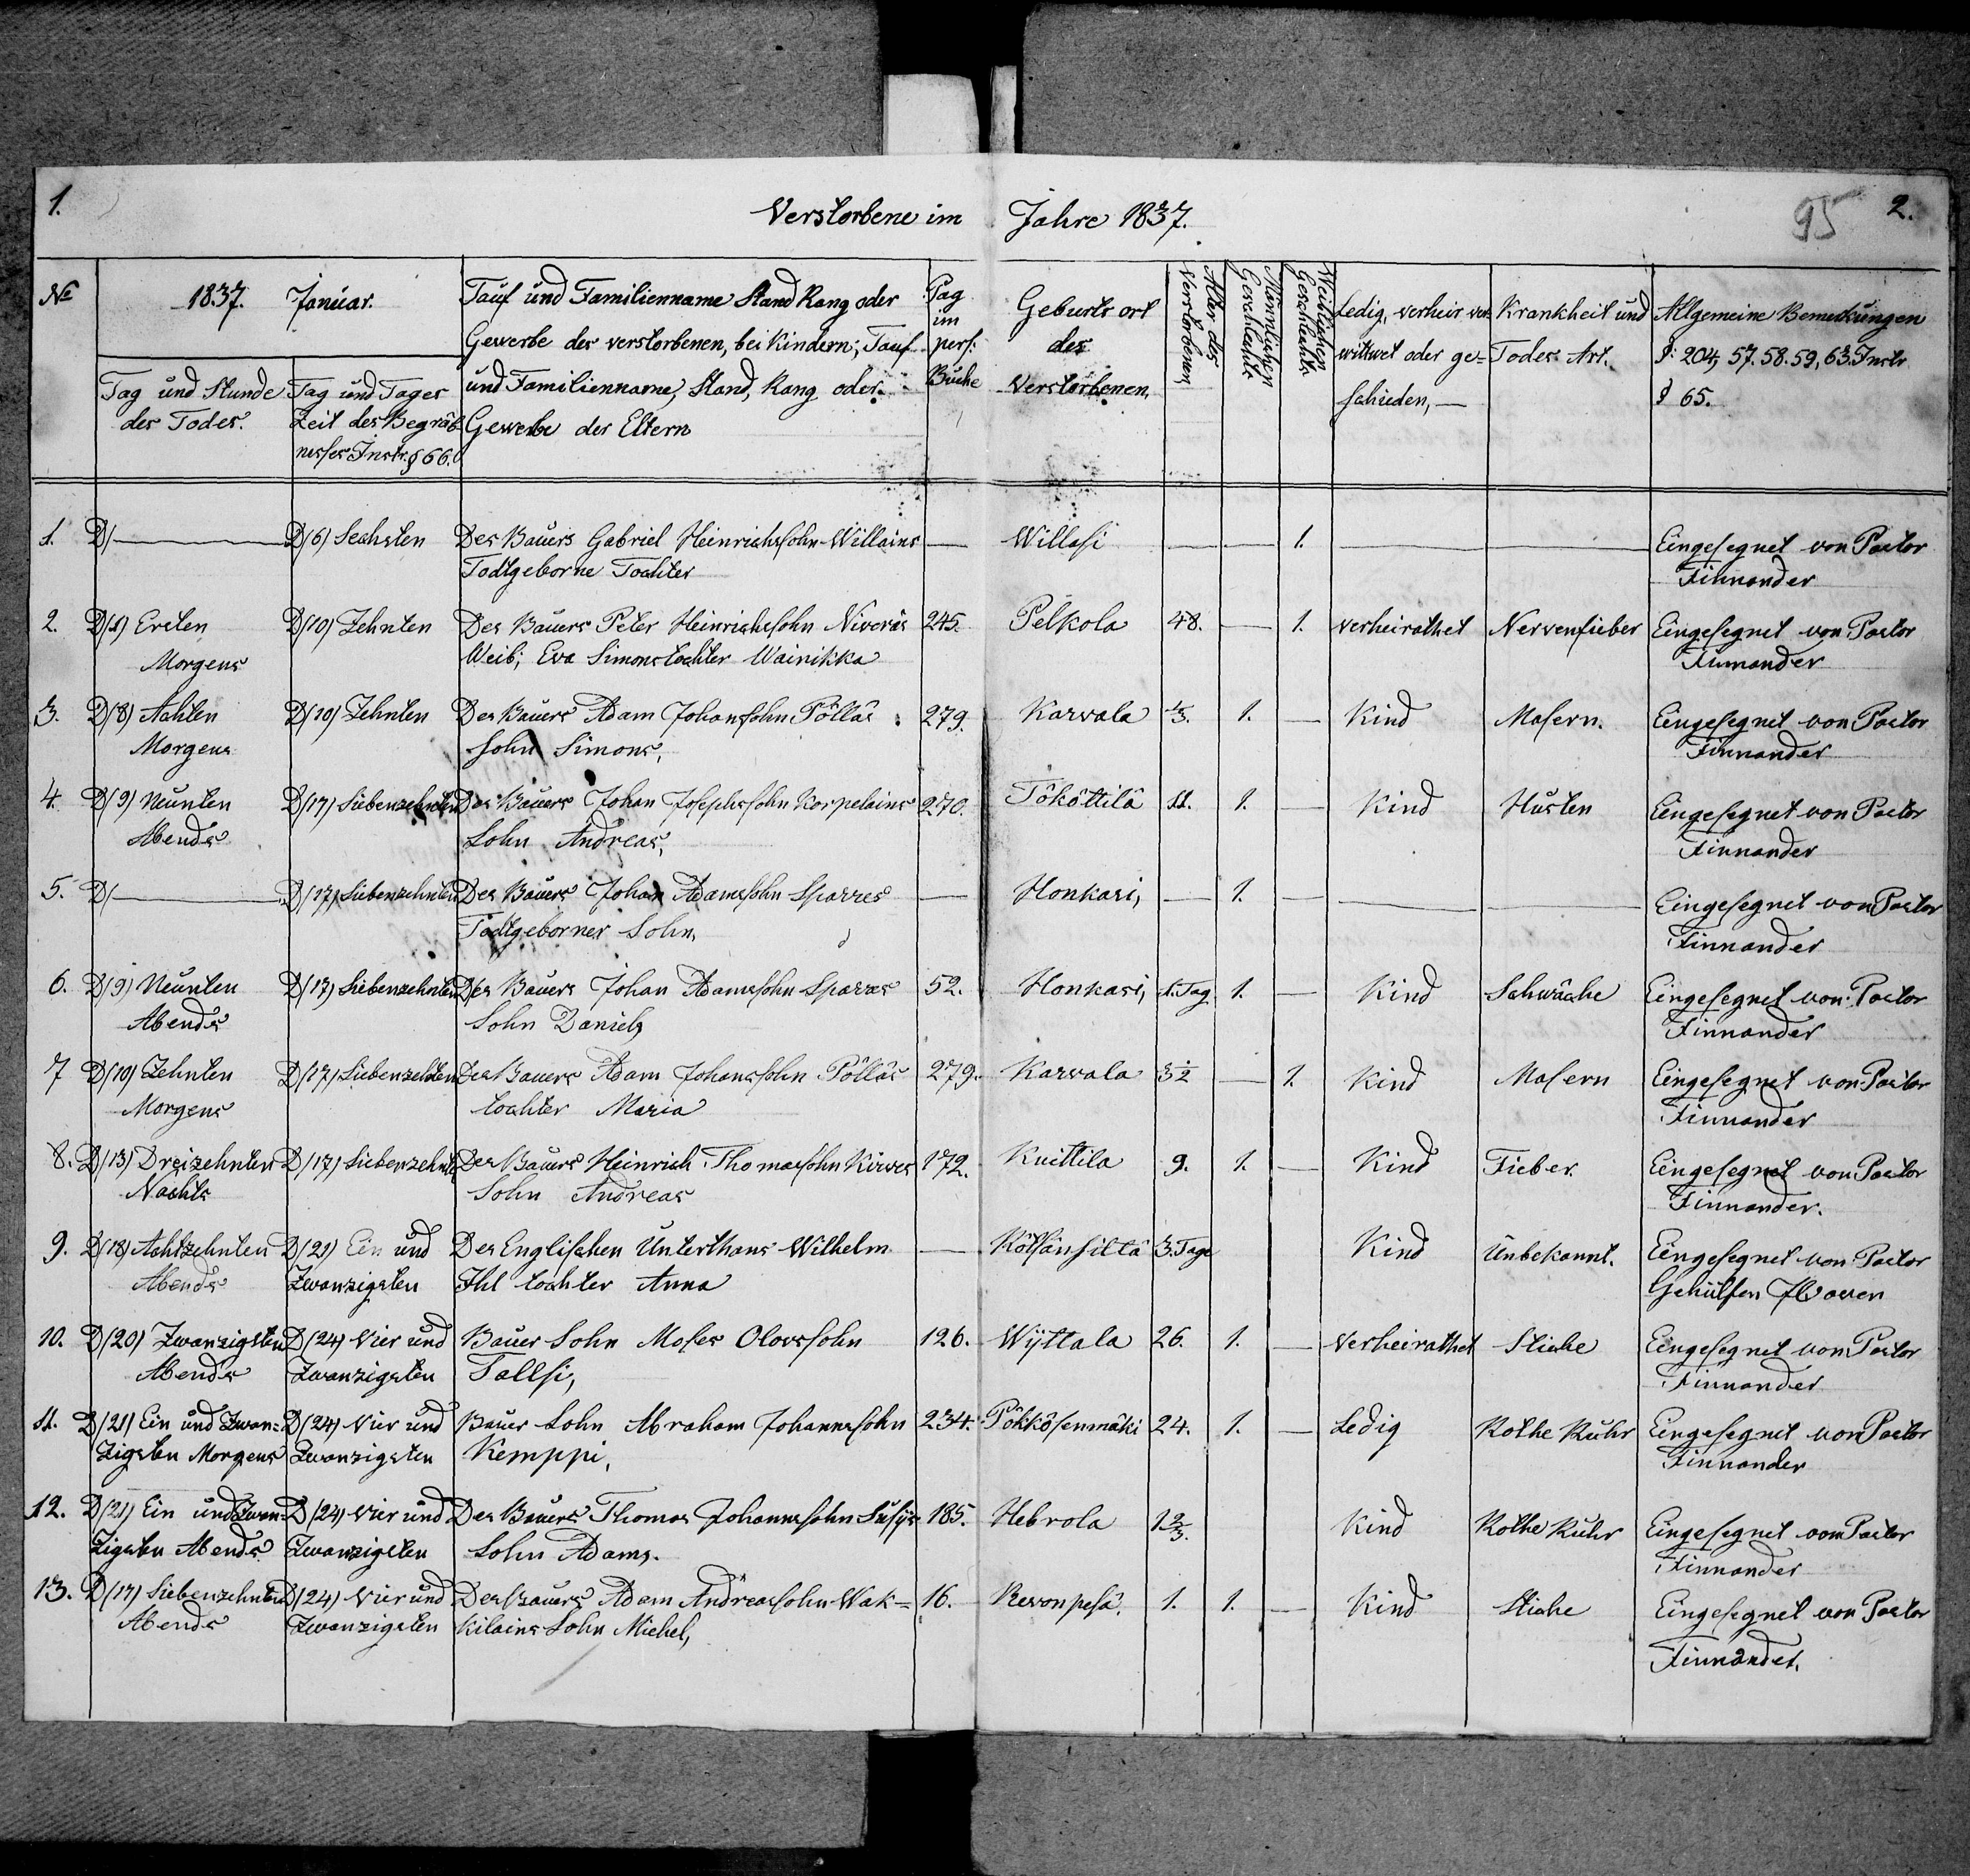 1.
Verstorbene im Jahre 1837.
95 2.
No
1837. Januar.
Tag und Stunde des Todes.
Tag und Tages Zeit des Begräb-
nesses Instr. § 66.
Tauf und Familienname Stand Rang oder
Gewerbe der verstorbenen, bei Kindern, Tauf
und Familienname, Stand, Rang oder
Gewerbe der Eltern
Pag im pers: Buche
Geburts ort
des
Verstorbenen,
Alter des Verstorbenen,
Männlichen Geschlechts
Weiblichen Geschlechts
Ledig, verheir ver
wittwet oder ge-
schieden, —
Krankheit und
Todes Art.
Allgemeine Bemerkungen
§: 204, 57. 58. 59, 63. Instr
§ 65.
1. D/ — D/6) Sechsten Des Bauers Gabriel Heinrichssohn Willains — Willasi — — 1. — — Eingesegnet von Pastor
Todtgeborne Tochter Finnander
2. D/1) Ersten D/10) Zehnten Des Bauers Peter Heinrichssohn Niveräs 245. Pelkola 48. — 1. verheirathet Nervenfieber Eingesegnet von Pastor
Morgens Weib, Eva Simonstochter Wainikka Finnander
3. D/8) Achten D/10) Zehnten Des Bauers Adam Johanssohn Pölläs 279. Karvala 1/3. 1. — Kind Masern. Eingesegnet von Pastor
Morgens Sohn Simons, Finnander
4. D/9) Neunten D/17) Siebenzehnten Des Bauers Johan Josephssohn Korpelains 270. Tököttilä 11. 1. — Kind Husten Eingesegnet von Pastor
Abends Sohn Andreas, Finnander
5. D/ — D/17) Siebenzehnten Des Bauers Johan Adamssohn Sparres — Honkasi, — 1. — — — Eingesegnet von Pastor
Todtgeborner Sohn, Finnander
6. D/9) Neunten D/17) Siebenzehnten Des Bauers Johan Adamssohn Sparres 52. Honkasi, 1. Tag 1. — Kind Schwäche Eingesegnet von Pastor
Abends Sohn Daniels Finnander
7 D/10) Zehnten D/17) Siebenzehnten Des Bauers Adam Johanssohn Pölläs 279. Karvala 3 1/2 — 1. Kind Masern Eingesegnet von Pastor
Morgens tochter Maria Finnander
8. D/13) Dreizehnten D/17) Siebenzehnten Des Bauers Heinrich Thomassohn Kirves 172. Kuittila 9. 1. — Kind Fieber. Eingesegnet von Pastor
Nachts Sohn Andreas Finnander.
9. D/18) Achtzehnten D/21) Ein und Des Englischen Unterthans Wilhelm — Kötsänsilta 3. Tage Kind Unbekannt. Eingesegnet von Pastor
Abends Zwanzigsten Ihl tochter Anna Gehülfen
10. D/20) Zwanzigsten D/24) Vier und Bauer Sohn Moses Olovssohn 126. Wyttala 26. 1. — Verheirathet Stiche Eingesegnet von Pastor
Abends Zwanzigsten Tallsi, Finnander
11. D/21) Ein und Zwan= D/24) Vier und Bauer Sohn Abraham Johannssohn 234. Pökkösenmäki 24. 1. — Ledig Rothe Ruhr Eingesegnet von Pastor
Zigsten Morgens Zwanzigsten Kemppi, Finnander
12. D/21) Ein und Zwan= D/24) Vier und Des Bauers Thomas Johannssohn Susijs 185. Hebrola 1 2/3. Kind Rothe Ruhr Eingesegnet vom Pastor
Zigsten Abends Zwanzigsten Sohn Adams. Finnander
13. D/17) Siebenzehnten D/24) Vier und Des Bauers Adam Andreassohn Wak= 16. Revonpesä. 1. 1. — Kind Stiche Eingesegnet von Pastor
Abends Zwanzigsten kilains Sohn Michel, Finnander.